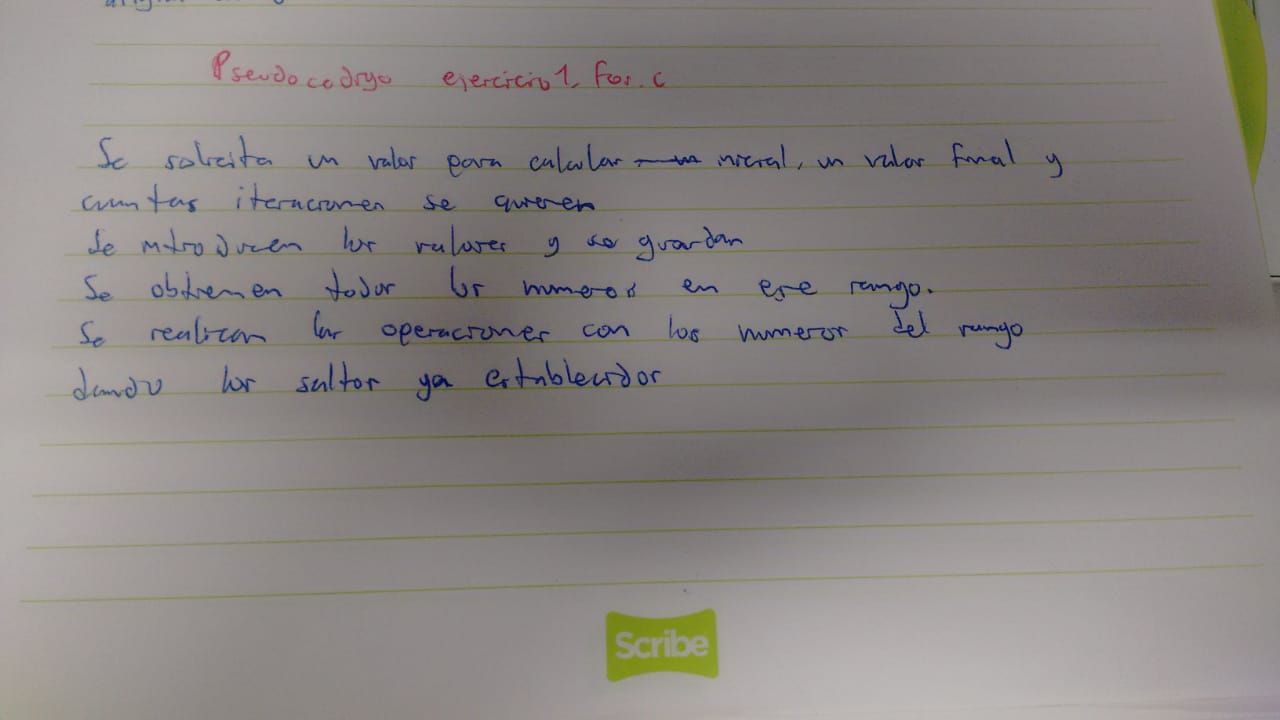 Pseudocodigo ejercicio1_for.c
Se solicita un valor para calcular inicial, un valor final y
cuantas iteraciones se quieren
Se introducen los valores y se guardan
Se obtienen todos los numeros en ese rango.
Se realizan las operaciones con los numeros del rango
dando los saltos ya establecidos
Scribe